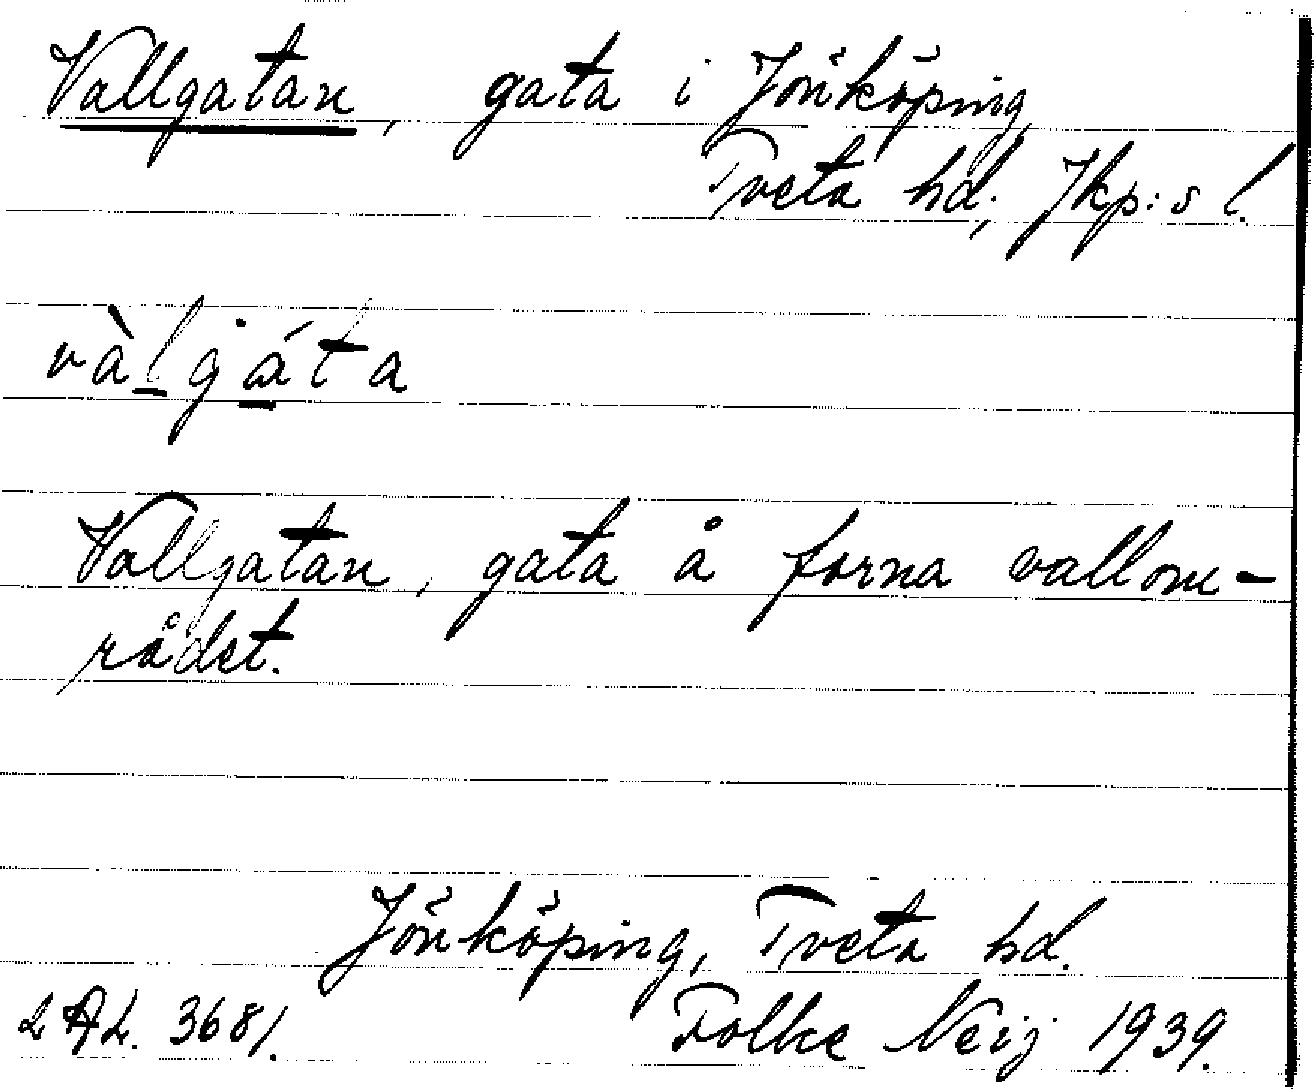 Vallgatan, gata i Jönköping
Tveta hd; Jkp:s l.
vàlgáta
Vallgatan, gata å forna vallom-
rådet.
Jönköping, Tveta hd.
LAL. 3681. Folke Neij 1939.